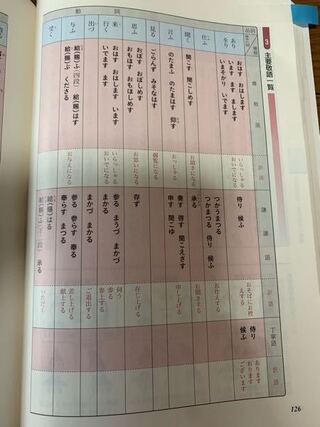 3 主要敬語一覧
尊敬語
訳語
謙譲語
訳語
丁寧語
訳語
動詞
あり をり
おはす おはします
いまそかり います
いらっしゃる
おいでになる
侍り 候ふ
侍り 候ふ
あります
おります
ございます
仕ふ
つかうまつる
つかまつる 侍り 候ふ
お仕えする
聞く
聞こす 聞こしめす
お聞きになる
承る
お聞きする
言ふ
のたまふ のたまはす 仰す
おっしゃる
奏す 啓す 聞こえさす
申す 聞こゆ
申し上げる
見る
ごらんず みそなはす
御覧になる
思ふ
おぼす おぼしめす
おもほす おもほしめす
お思いになる
存ず
存じ上げる
来 行く
おはす おはします います
いでます ます
いらっしゃる
おいでになる
参る まうづ まかづ
まかる
伺う
参る
参上する
出づ
まかづ まかる
ご退出する
与ふ
給(賜)ふ〔四段〕 給(賜)はす
くださる
お与えになる
参る 参らす 奉る
差し上げる
献上する
受く
給(賜)はる
承る
いただく
126